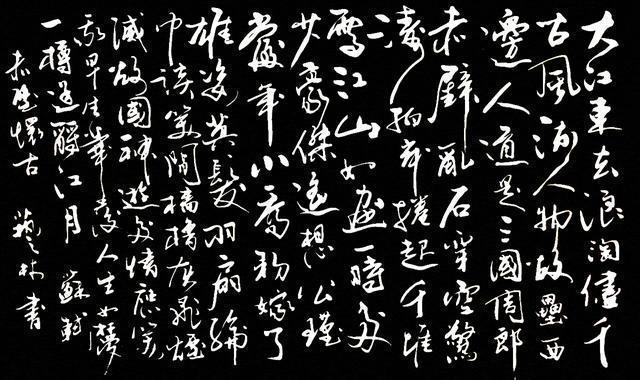 大江東去浪淘儘千
古風流人物故壘西
邊人道是三國周郎
赤壁亂石穿空驚
濤拍岸捲起千堆
雪江山如畫一時多
少豪傑遙想公瑾
當年小喬初嫁了
雄姿英髮羽扇綸
巾談笑間檣櫓灰飛煙
滅故國神遊多情應笑
我早生華發人生如夢
一樽還酹江月 蘇軾
赤壁懷古 林書